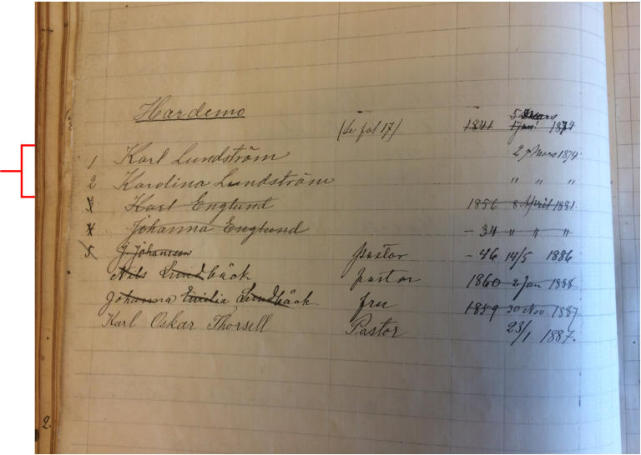 Hardemo
(Se fol 17) 1841 5 Mars 1874
1 Karl Lundström 2 Mars 1874
2 Karolina Lundström " " "
3 Karl Englund 1836 8 April 1881
4 Johanna Englund - 34 " " "
5 J Johansson pastor - 46 14/5 1886
Nils Lundbäck pastor 1860 2 Jan
Johanna Emilia Lundbäck fru 1859 30 Nov 1887
Karl Oskar Thorsell Pastor 23/1 1887.
2.